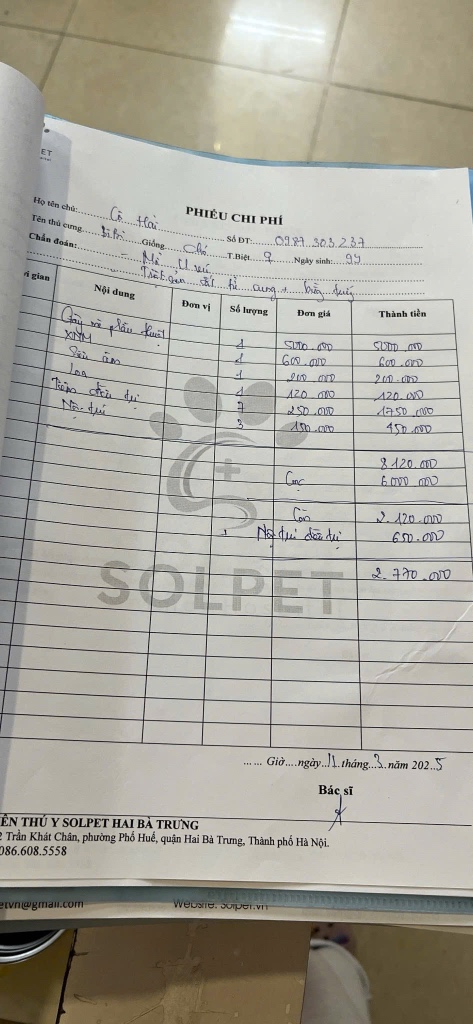 ET
PHIẾU CHI PHÍ
Họ tên chủ: Cô Hải Số ĐT: 0987 303 237
Tên thú cưng: Giống: Chó T.Biệt ♀ Ngày sinh: 9y
Chẩn đoán: - Mổ U vú
- Triệt sản tử cung + buồng trứng
ời gian Nội dung Đơn vị Số lượng Đơn giá Thành tiền
Gây mê phẫu thuật 1 5000.000 5000.000
XNM 1 600.000 600.000
Siêu âm 1 200.000 200.000
Loa 1 120.000 120.000
Tiêm điều trị 7 250.000 1750.000
Nội trú 3 150.000 450.000
8120.000
Cọc 6000 000
Còn 2.120.000
Nội trú điều trị 650.000
2.770.000
SOLPET
...... Giờ....ngày 11 tháng 3 năm 2025
Bác sĩ
ỆN THÚ Y SOLPET HAI BÀ TRƯNG
2 Trần Khát Chân, phường Phố Huế, quận Hai Bà Trưng, Thành phố Hà Nội.
086.608.5558
etvn@gmail.com Website: Solpet.vn